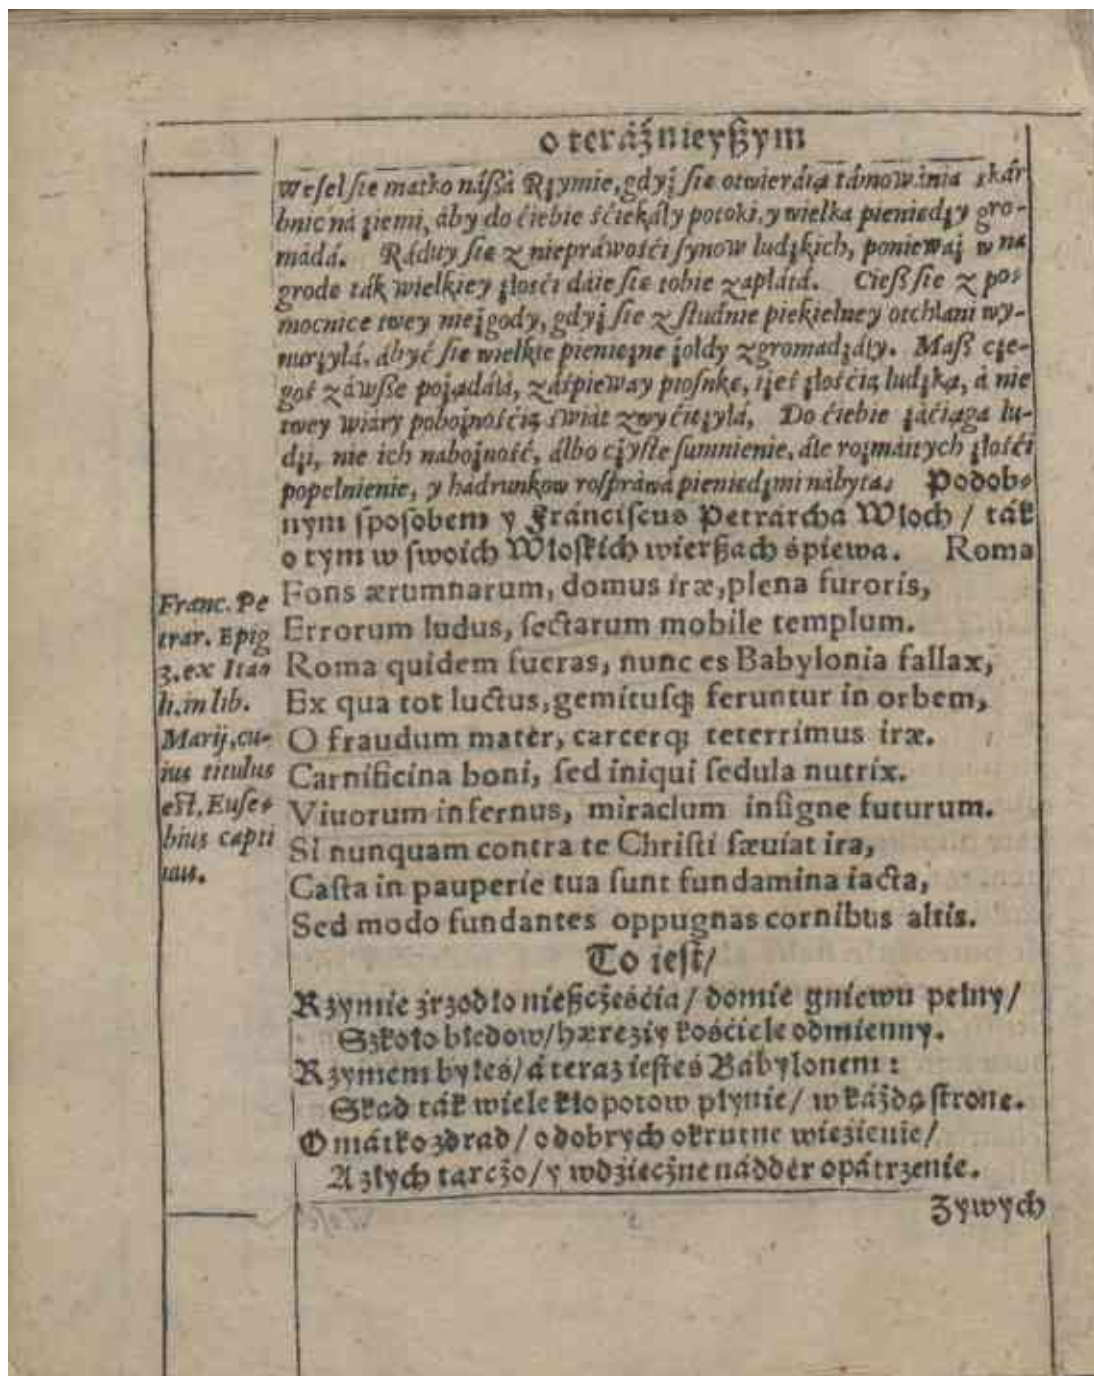 o teráźnieyßym
Weſel ſie matko náßá Rzymie, gdyż ſie otwieráią támowánia skár
bnic ná ziemi, áby do ćiebie śćiekáły potoki, y wielka pieniędzy gro-
mádá. Ráduy ſię z niepráwośći ſynow ludzkich, ponieważ w na
grode ták wielkiey złośći dáie ſie tobie zapłátá. Cieß ſie z po-
mocnice twey niezgody, gdyż ſie z ſtudnie piekielney otchłani wy-
nurzyłá, ábyć ſie wielkie pieniężne żołdy zgromadzáły. Maß cze-
goś záwße pożądáłá, záśpieway pioſnkę, iżeś złośćią ludzką, á nie
twey wiáry pobożnośćią świát zwyćiężyłá, Do ćiebie záćiąga lu-
dzi, nie ich nabożność, álbo czyſte ſumnienie, ále rozmáitych złośći
popełnienie, y hadrunkow roſpráwá pieniędzmi nábyta. Podob-
nym ſpoſobem y Fránciſcus Petrárcha Włoch / ták
o tym w ſwoich Włoſkich wierßach śpiewa. Roma
Fons ærumnarum, domus iræ, plena furoris,
Errorum ludus, ſectarum mobile templum.
Roma quidem fueras, nunc es Babylonia fallax,
Ex qua tot luctus, gemituſq; feruntur in orbem,
O fraudum matèr, carcerq; teterrimus iræ.
Carnificina boni, ſed iniqui ſedula nutrix.
Viuorum infernus, miraclum inſigne futurum.
Si nunquam contra te Chriſti ſæuiat ira,
Caſta in pauperie tua ſunt fundamina iacta,
Sed modo fundantes oppugnas cornibus altis.
Franc. Pe
trar. Epig
3. ex Itao
li. in lib.
Marij, cu-
ius titulus
est, Euſe-
bius capti
uus.
To ieſt /
Rzymie źrzodło nießcżeśćia / domie gniewu pełny /
Szkoło błędow / hæreziy kośćiele odmienny.
Rzymem byłeś / á teraz ieſteś Bábylonem :
Skąd ták wiele kłopotow płynie / w káżdą ſtronę.
O mátko zdrad / o dobrych okrutne więźienie /
A złych tarcżo / y wdźięcżne náddèr opátrzenie.
Zywych